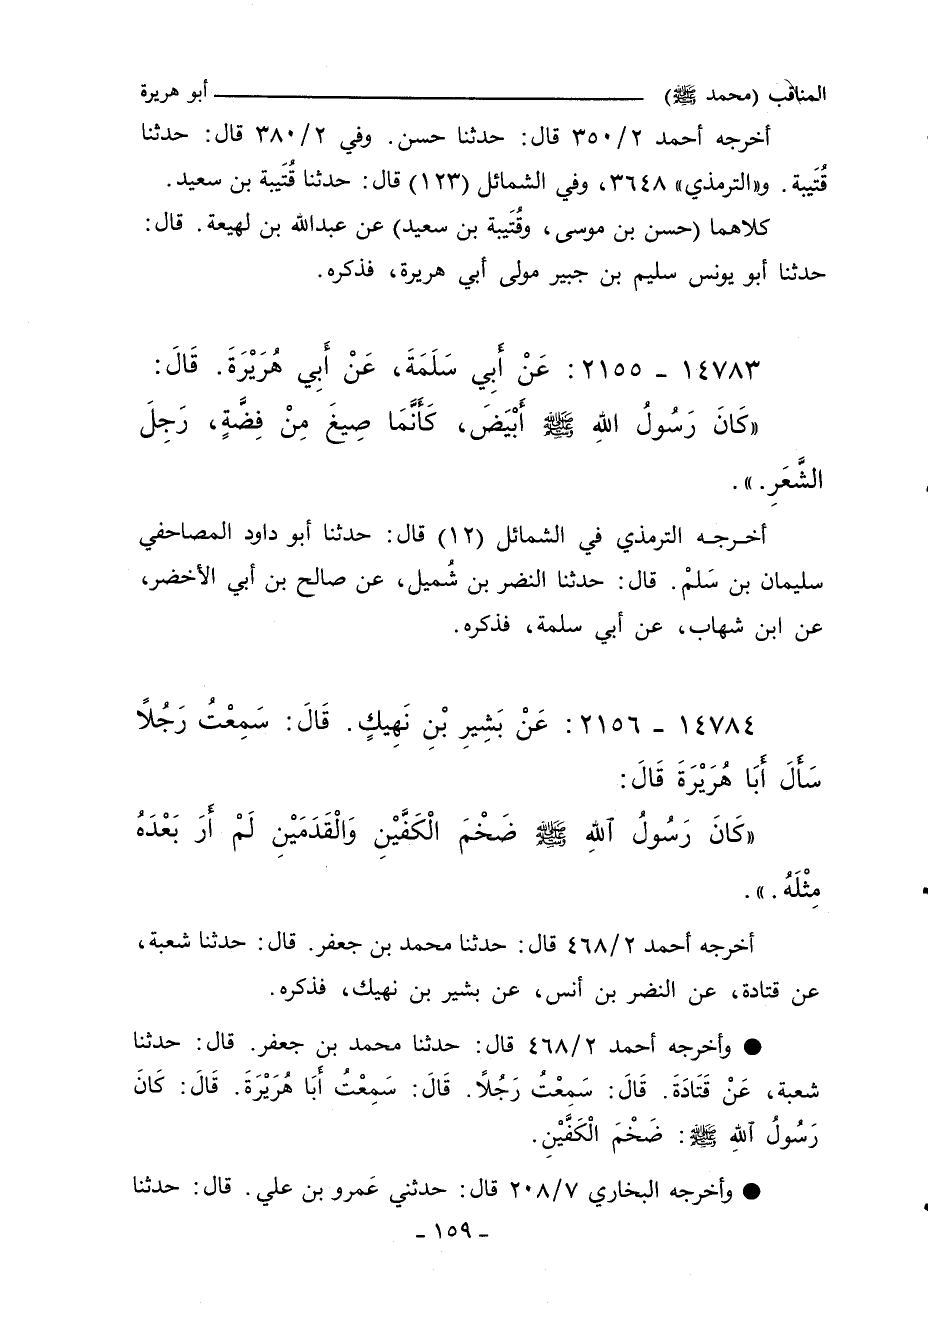 المناقب (محمد ﷺ) ــــــــــــــــ أبو هريرة
أخرجه أحمد ٣٥٠/٢ قال: حدثنا حسن. وفي ٣٨٠/٢ قال: حدثنا
قُتَيبة. و«الترمذي» ٣٦٤٨، وفي الشمائل (١٢٣) قال: حدثنا قُتَيبة بن سعيد.
كلاهما (حسن بن موسى، وقُتَيبة بن سعيد) عن عبدالله بن لهيعة. قال:
حدثنا أبو يونس سليم بن جبير مولى أبي هريرة، فذكره.
١٤٧٨٣ - ٢١٥٥: عَنْ أَبِي سَلَمَةَ، عَنْ أَبِي هُرَيْرَةَ. قَالَ:
«كَانَ رَسُولُ اللهِ ﷺ أَبْيَضَ، كَأَنَّمَا صِيغَ مِنْ فِضَّةٍ، رَجِلَ
الشَّعَرِ.».
أخرجه الترمذي في الشمائل (١٢) قال: حدثنا أبو داود المصاحفي
سليمان بن سَلمْ. قال: حدثنا النضر بن شُميل، عن صالح بن أبي الأخضر،
عن ابن شهاب، عن أبي سلمة، فذكره.
١٤٧٨٤ - ٢١٥٦: عَنْ بَشِيرِ بْنِ نَهِيكٍ. قَالَ: سَمِعْتُ رَجُلاً
سَأَلَ أَبَا هُرَيْرَةَ قَالَ:
«كَانَ رَسُولُ ٱللهِ ﷺ ضَخْمَ الْكَفَّيْنِ وَالْقَدَمَيْنِ لَمْ أَرَ بَعْدَهُ
مِثْلَهُ.».
أخرجه أحمد ٤٦٨/٢ قال: حدثنا محمد بن جعفر. قال: حدثنا شعبة،
عن قتادة، عن النضر بن أنس، عن بشير بن نهيك، فذكره.
● وأخرجه أحمد ٤٦٨/٢ قال: حدثنا محمد بن جعفر. قال: حدثنا
شعبة، عَنْ قَتَادَةَ. قَالَ: سَمِعْتُ رَجُلًا. قَالَ: سَمِعْتُ أَبَا هُرَيْرَةَ. قَالَ: كَانَ
رَسُولُ ٱللهِ ﷺ: ضَخْمَ الْكَفَّيْنِ.
● وأخرجه البخاري ٢٠٨/٧ قال: حدثني عَمرو بن علي. قال: حدثنا
- ١٥٩ -